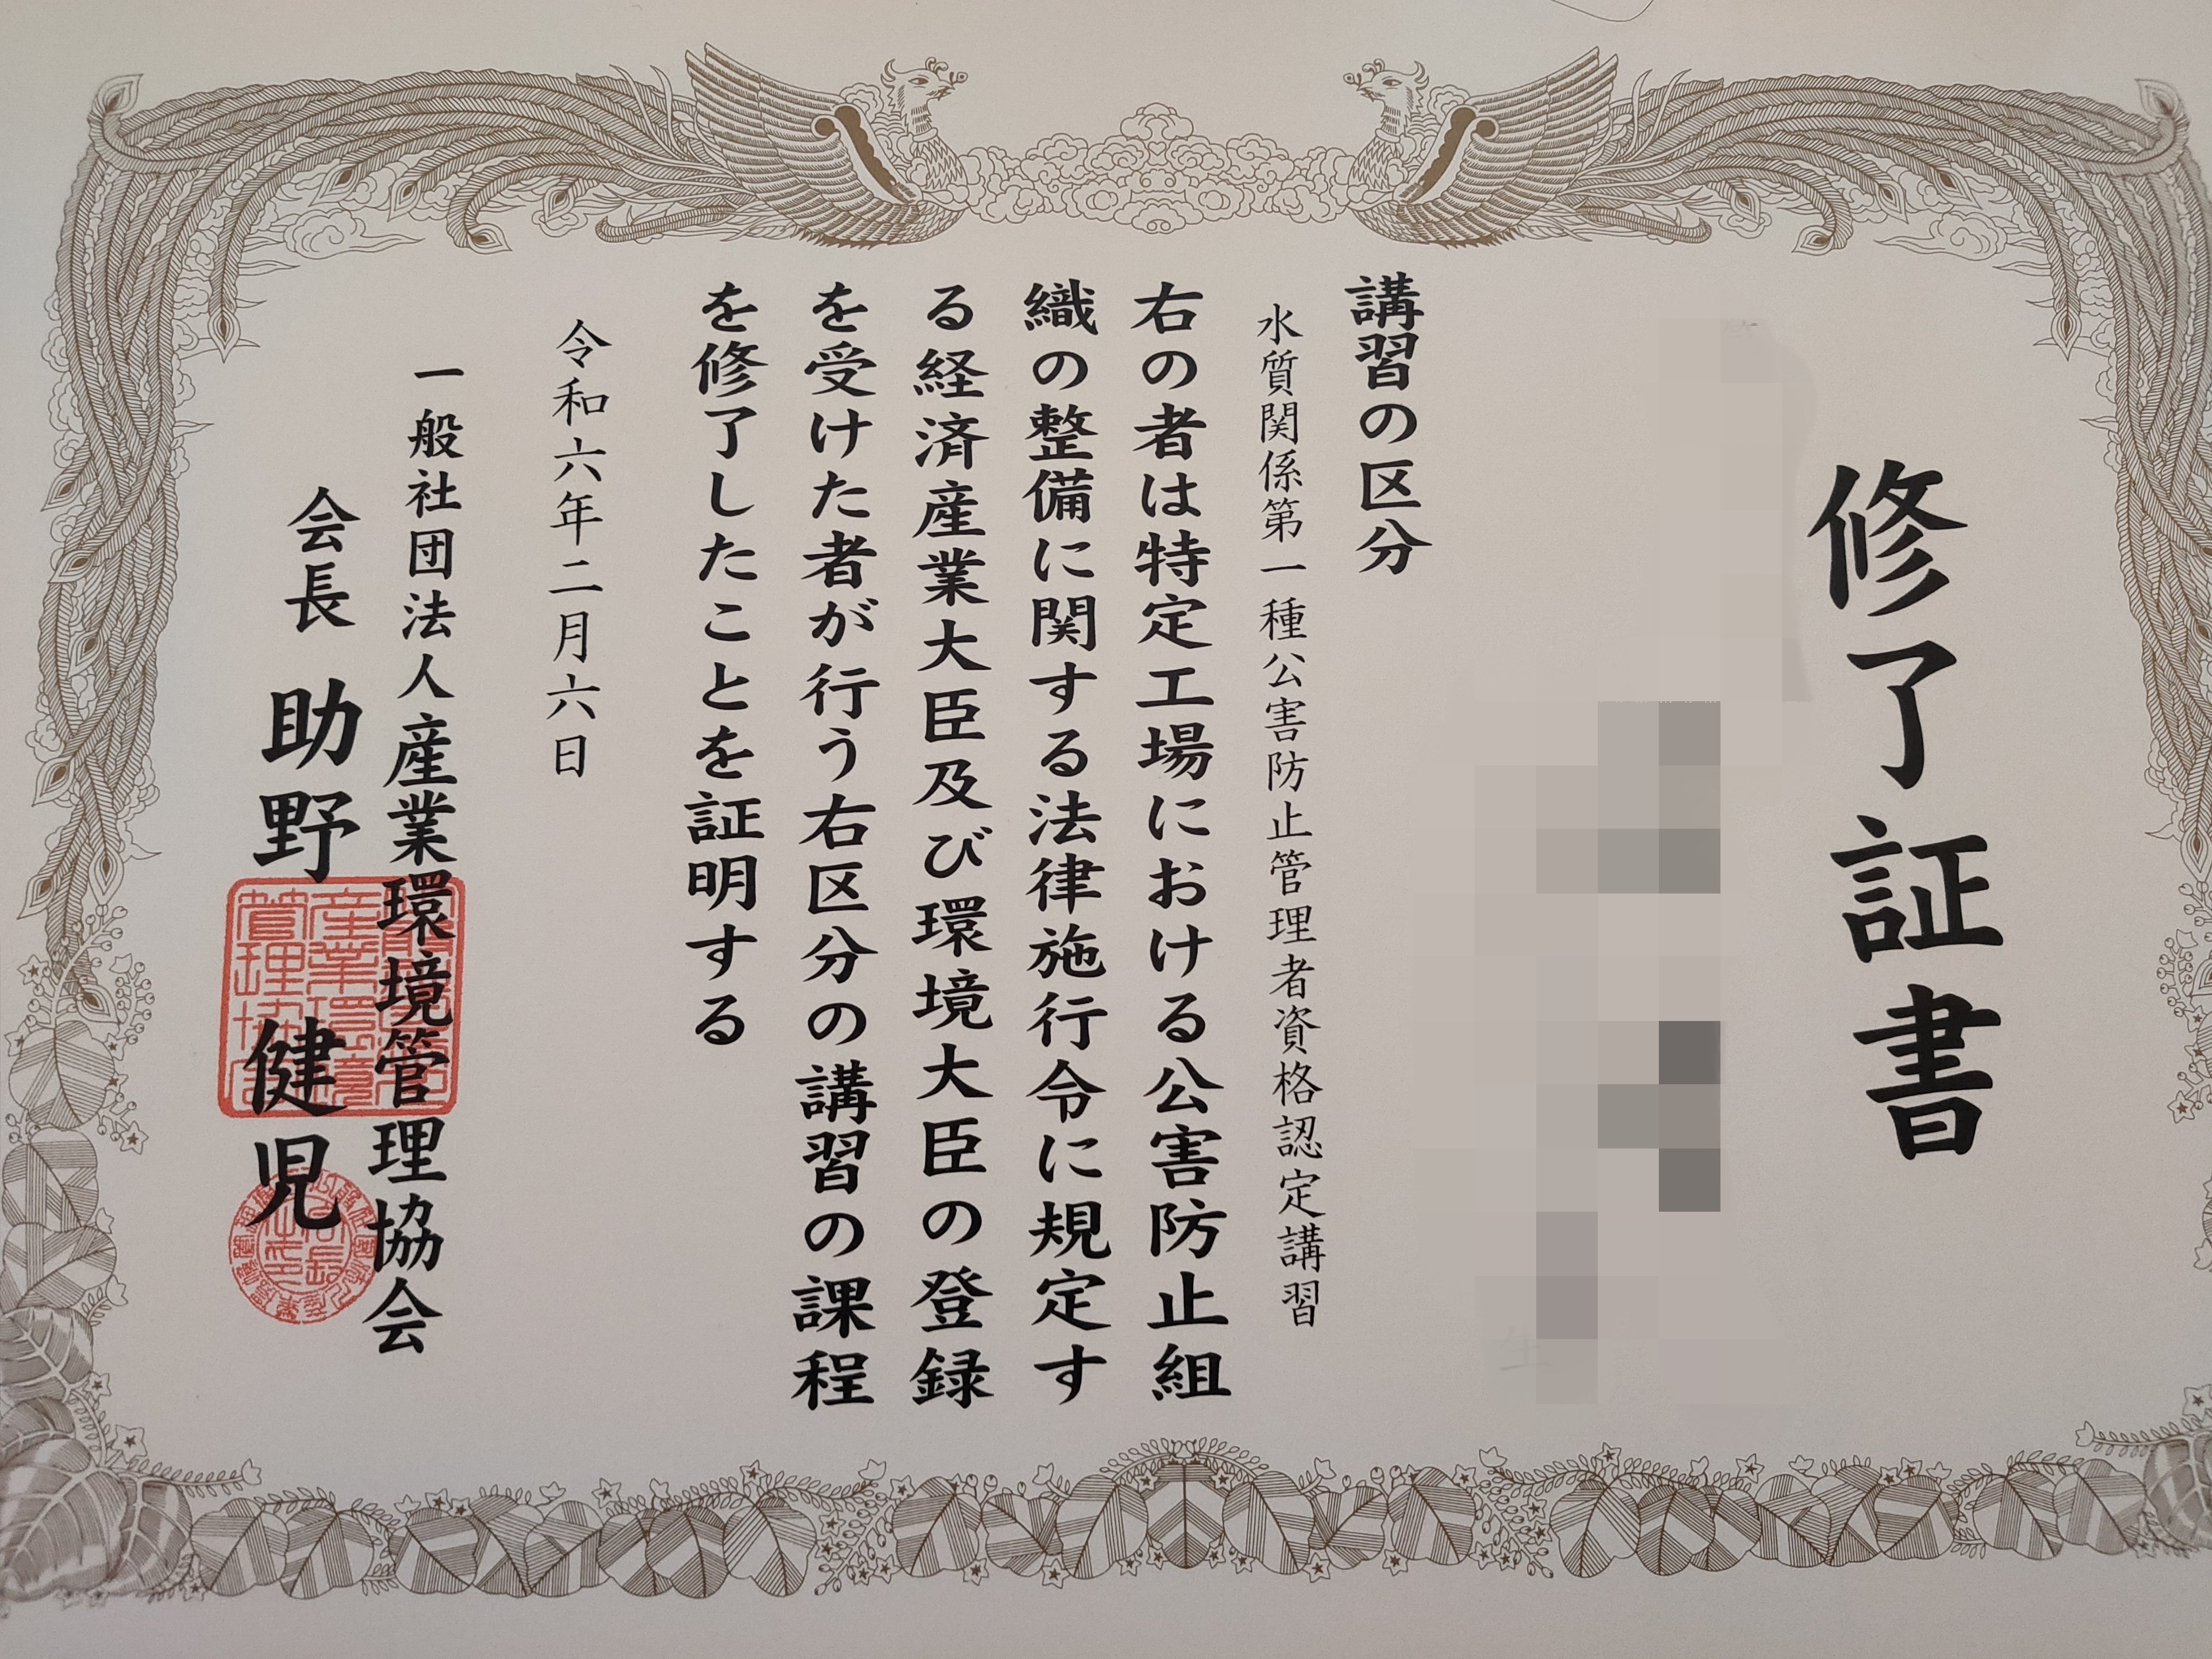 修了証書
講習の区分
水質関係第一種公害防止管理者資格認定講習
右の者は特定工場における公害防止組
織の整備に関する法律施行令に規定す
る経済産業大臣及び環境大臣の登録
を受けた者が行う右区分の講習の課程
を修了したことを証明する
令和六年二月六日
一般社団法人産業環境管理協会
会長 助野健児